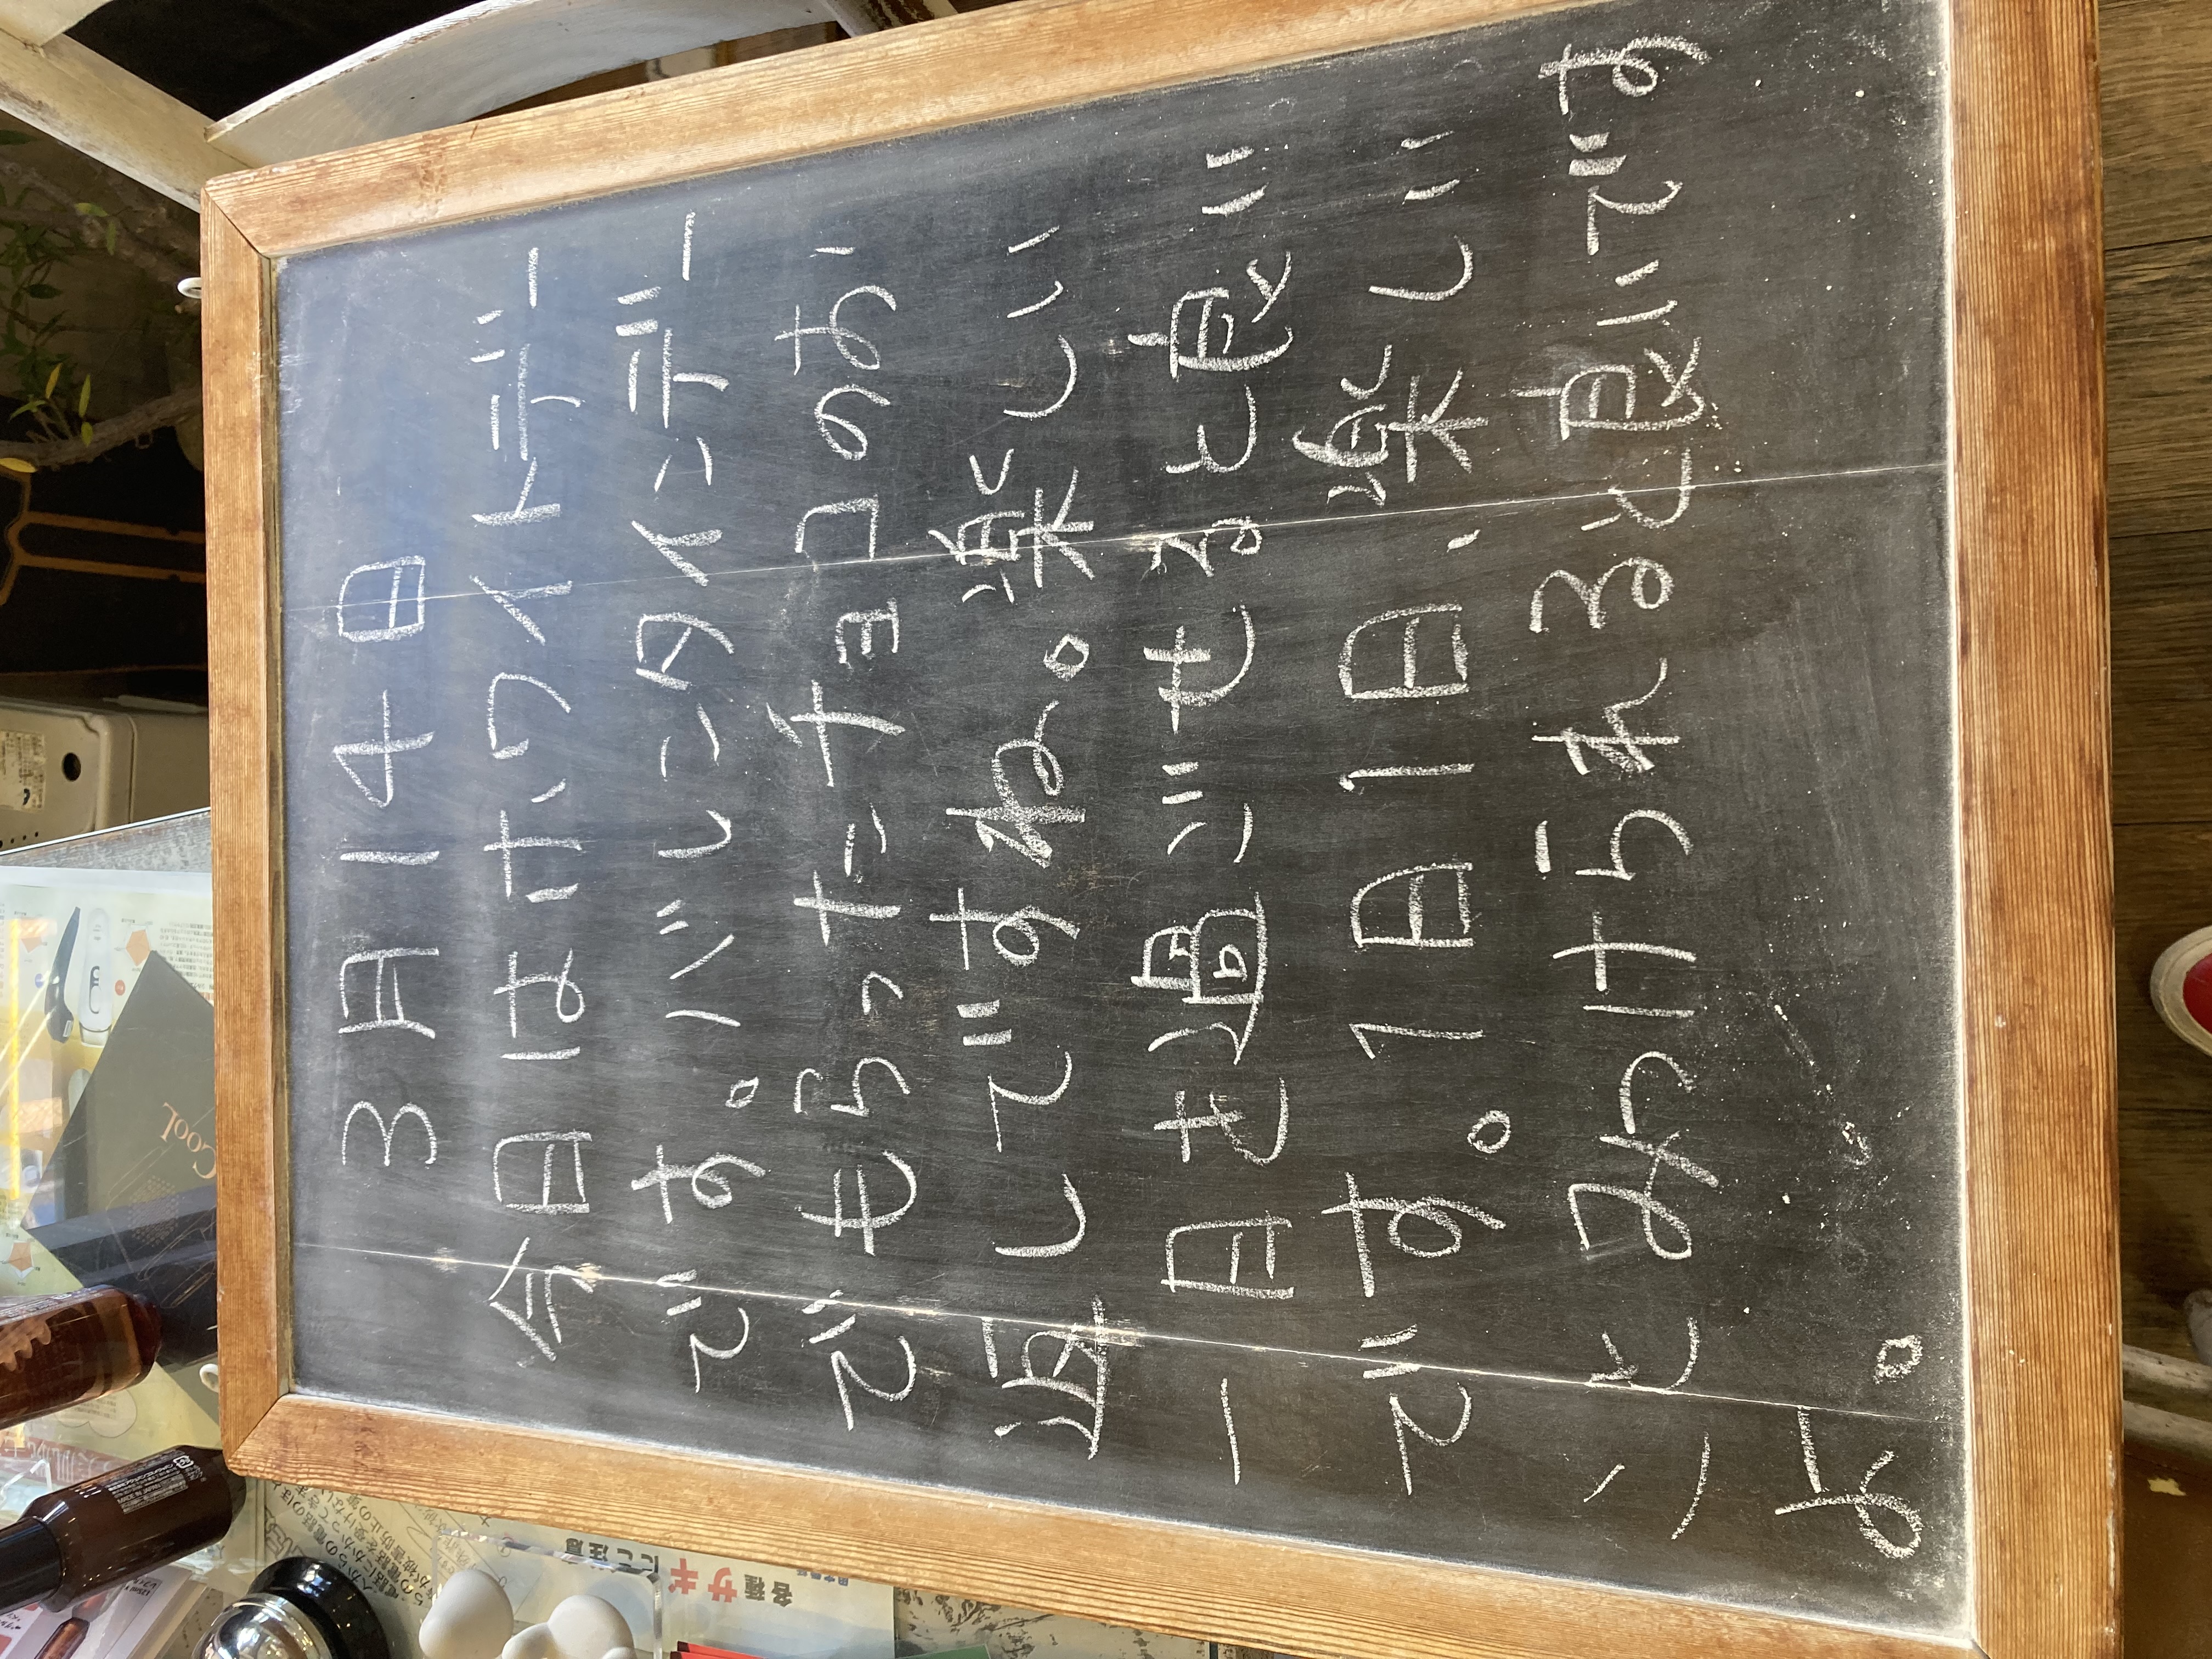 3月14日
今日はホワイトデー
です。バレンタインデー
でもらったチョコのお
返しですね。楽しい
一日を過ごせると良い
です。1日1日、楽しい
ことみつけられると良いです
よ。
Cool
各種サギにご注意